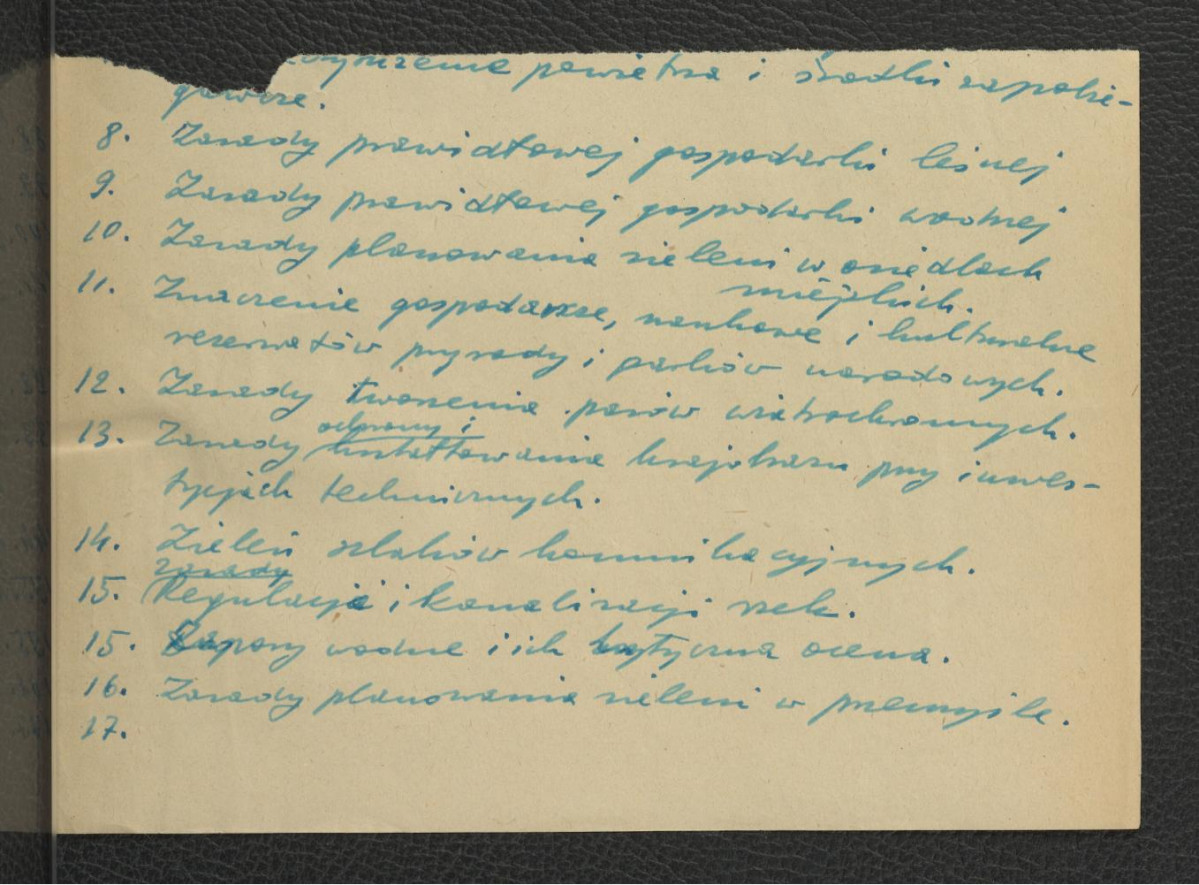 powietrza i środki zapobie-
gawcze.
8. Zasady prawidłowej gospodarki leśnej
9. Zasady prawidłowej gospodarki wodnej
10. Zasady planowania zieleni w osiedlach
miejskich.
11. Znaczenie gospodarcze, naukowe i kulturalne
rezerwatów przyrody i parków narodowych.
12. Zasady tworzenia pasów wiatrochronnych.
ochrony i
13. Zasady kształtowania krajobrazu przy inwes-
tycjach technicznych.
14. Zieleń szlaków komunikacyjnych.
Zasady
15. Regulacja i kanalizacji rzek.
15. Zapory wodne i ich krytyczna ocena.
16. Zasady planowania zieleni w przemyśle.
17.